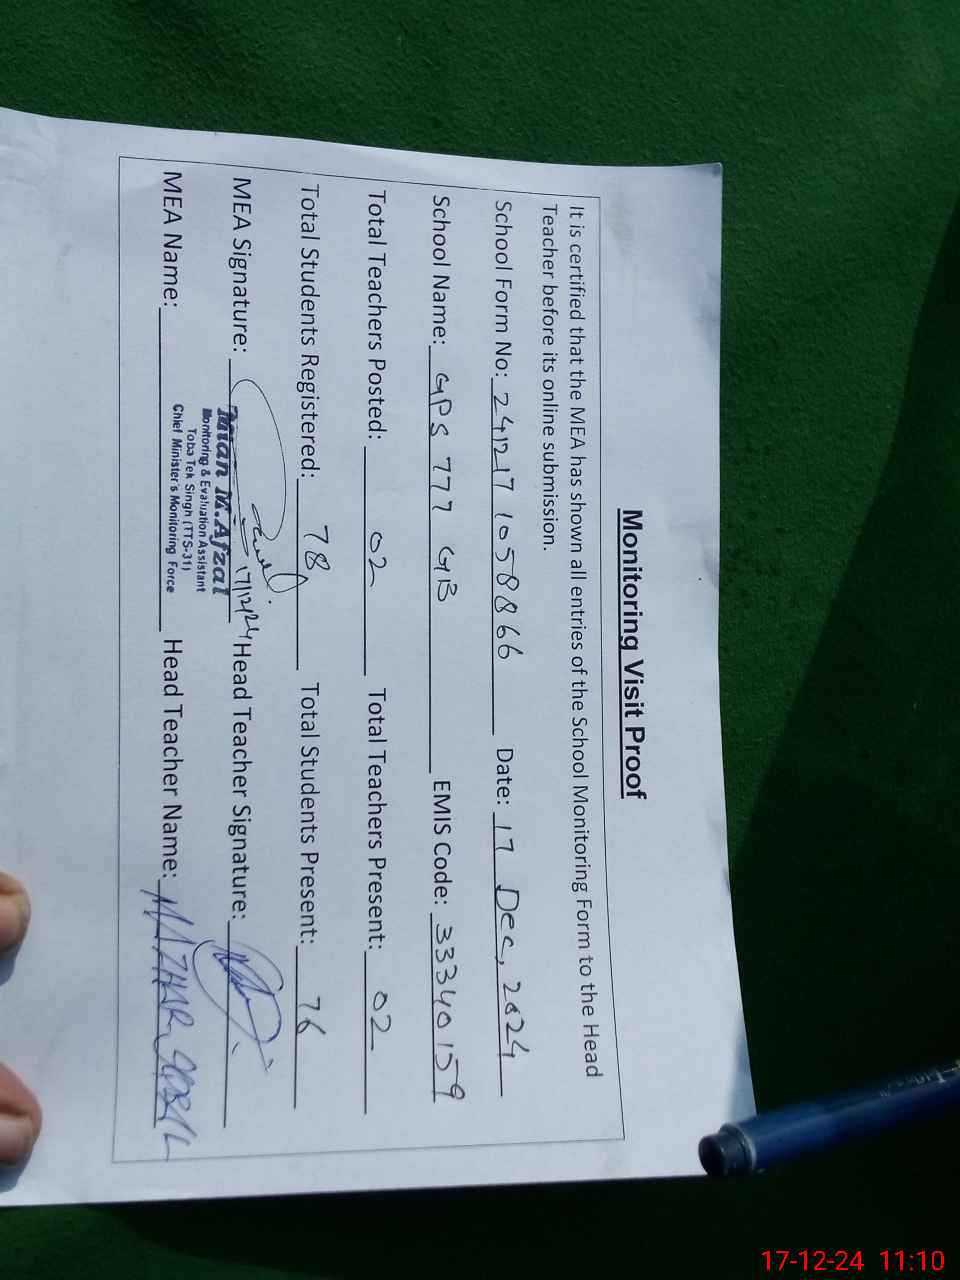 Monitoring Visit Proof
It is certified that the MEA has shown all entries of the School Monitoring Form to the Head
Teacher before its online submission.
School Form No: 241217 1058866 Date: 17 Dec, 2024
School Name: GPS 777 GB EMIS Code: 33340159
Total Teachers Posted: 02 Total Teachers Present: 02
Total Students Registered: 78 Total Students Present: 76
MEA Signature: 17/12/24 Head Teacher Signature:
Mian M.Afzal
Monitoring & Evaluation Assistant
Toba Tek Singh (TTS-31)
Chief Minister's Monitoring Force
MEA Name: Head Teacher Name: MAZHAR IQBAL
17-12-24 11:10